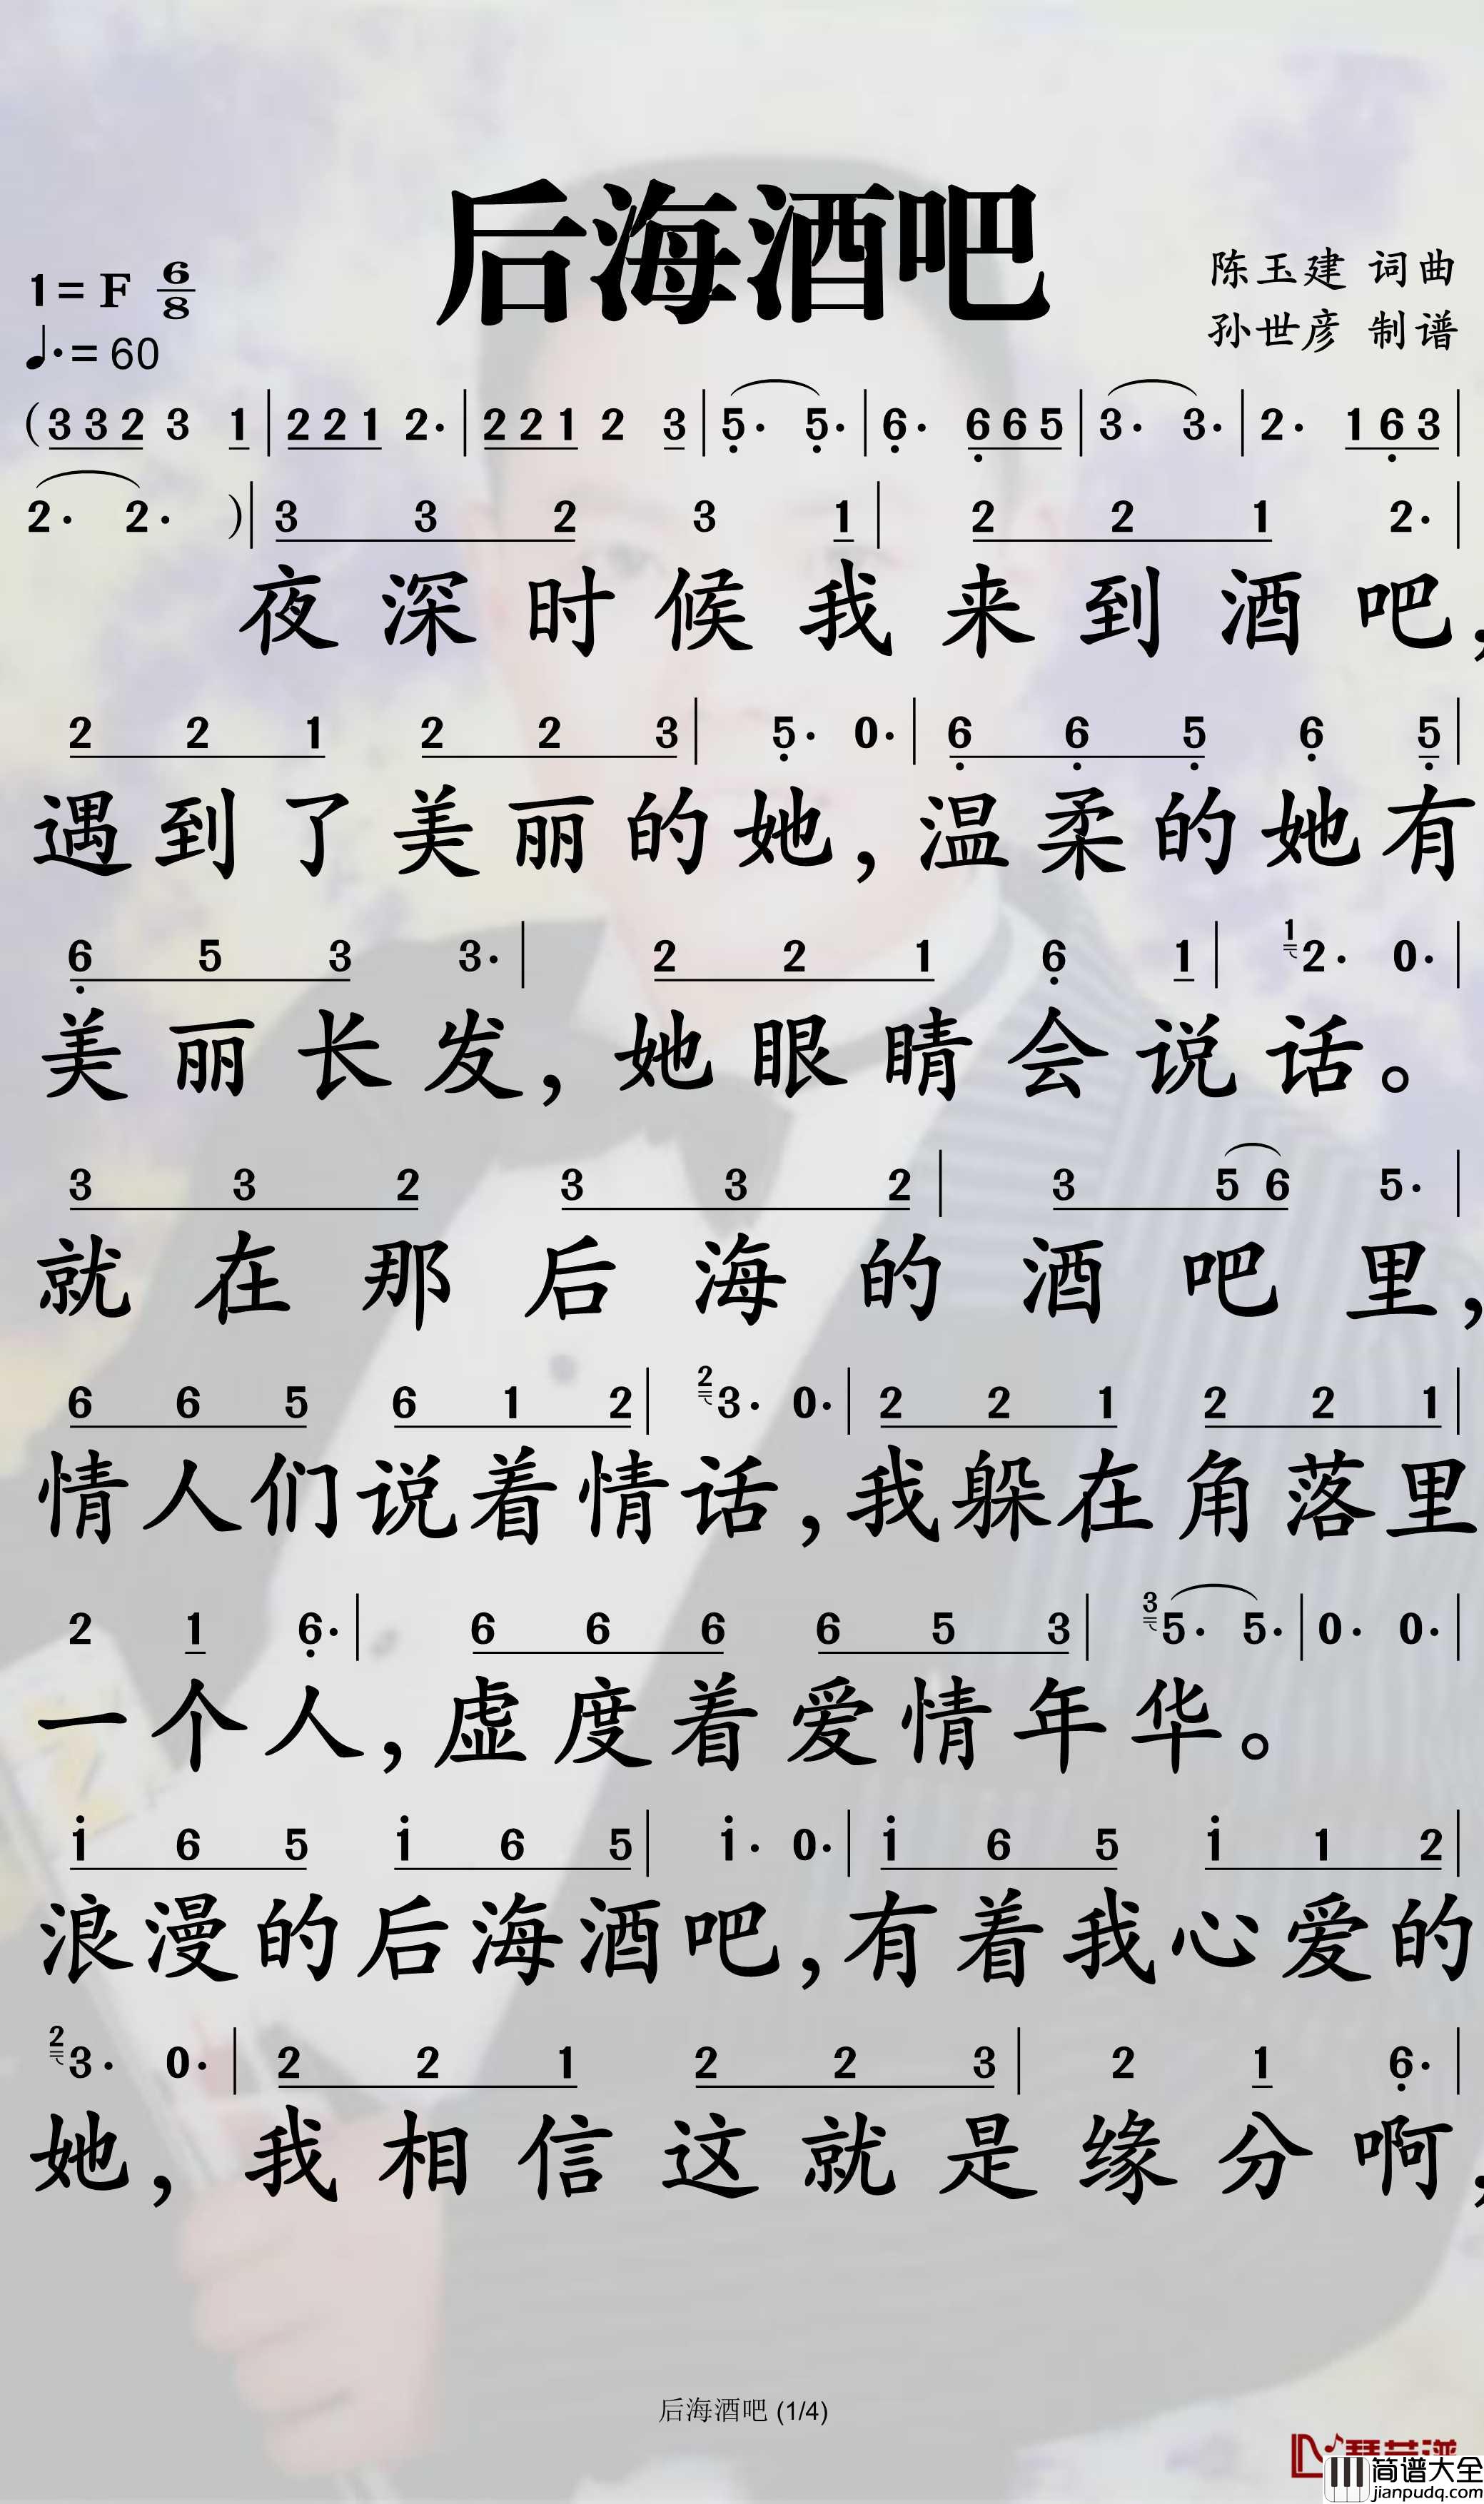 后海酒吧
1=F 6/8
♩.=60
陈玉建 词曲
孙世彦 制谱
(3 3 2 3 1 | 2 2 1 2· | 2 2 1 2 3 | 5· 5· | 6· 6 6 5 | 3· 3· | 2· 1 6 3 |
2· 2· ) | 3 3 2 3 1 | 2 2 1 2· |
夜深时候我来到酒吧，
2 2 1 2 2 3 | 5· 0· | 6 6 5 6 5 |
遇到了美丽的她，温柔的她有
6 5 3 3· | 2 2 1 6 1 | 1 2· 0· |
美丽长发，她眼睛会说话。
3 3 2 3 3 2 | 3 5 6 5· |
就在那后海的酒吧里，
6 6 5 6 1 2 | 2 3· 0· | 2 2 1 2 2 1 |
情人们说着情话，我躲在角落里
2 1 6· | 6 6 6 6 5 3 | 3 5· 5· | 0· 0· |
一个人，虚度着爱情年华。
i 6 5 i 6 5 | i· 0· | i 6 5 i 1 2 |
浪漫的后海酒吧，有着我心爱的
2 3· 0· | 2 2 1 2 2 3 | 2 1 6· |
她，我相信这就是缘分啊，
后海酒吧 (1/4)
简谱大全
jianpudq.com